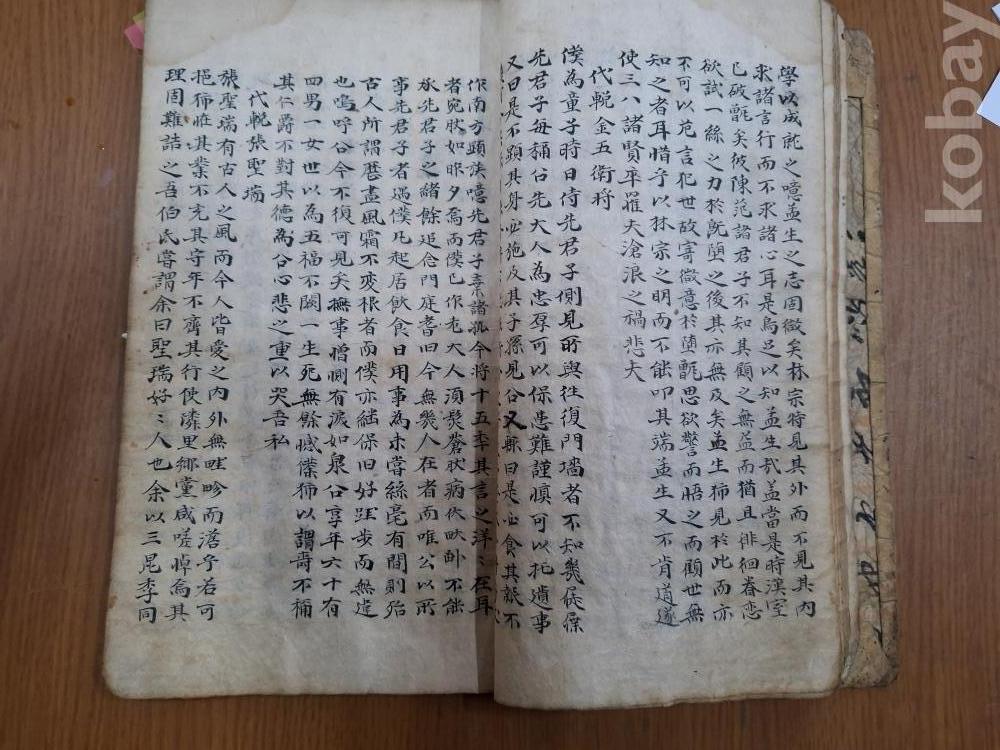 學以成就之噫孟生之志固微矣林宗特見其外而不見其內
求諸言行而不求諸心耳是烏足以知孟生哉盖當是時漢室
已破甑矣彼陳范諸君子不知其顧之無益而猶且徘徊眷恋
欲試一絲之力於既墮之後其亦無及矣孟生獨見於此而亦
不可以危言犯世故寄微意於墮甑思欲警而悟之而顧世無
知之者耳惜乎以林宗之明而不能叩其端孟生又不肯道遂
使三八諸賢卒罹夫滄浪之禍悲夫
代輓金五衛將
僕為童子時日侍先君子側見所與往復門墻者不知幾僕
先君子每稱公先大人為忠厚可以保患難謹慎可以托遺事
又曰是不顯其身必施及其子孫見公又輒曰是必食其報不
作南方顯族噫先君子棄諸孤今將十五年其言之洋々在耳
者宛狀如昨夕焉而僕已作老大人須髮蒼狀病依牀卧不能
承先君子之緒餘延念門庭耆旧今無幾人在者而唯公以所
事先君子者遇僕凡起居飲食日用事為未嘗絲毫有間則殆
古人所謂曆盡風霜不变根者而僕亦継保旧好跬步而無違
也嗚呼公今不復可見矣撫事增惻有淚如泉公享年六十有
四男一女世以為五福不闕一生死無餘憾僕獨以謂壽不稱
其仁爵不對其德為公心悲之重以哭吾私
代輓張聖瑞
張聖瑞有古人之風而今人皆愛之内外無畦畛而澹乎若可
挹獨恠其業不充其守年不齊其行使隣里鄉黨咸嗟悼焉其
理固難詰之吾伯氏嘗謂余曰聖瑞好々人也余以三昆季同
kobay